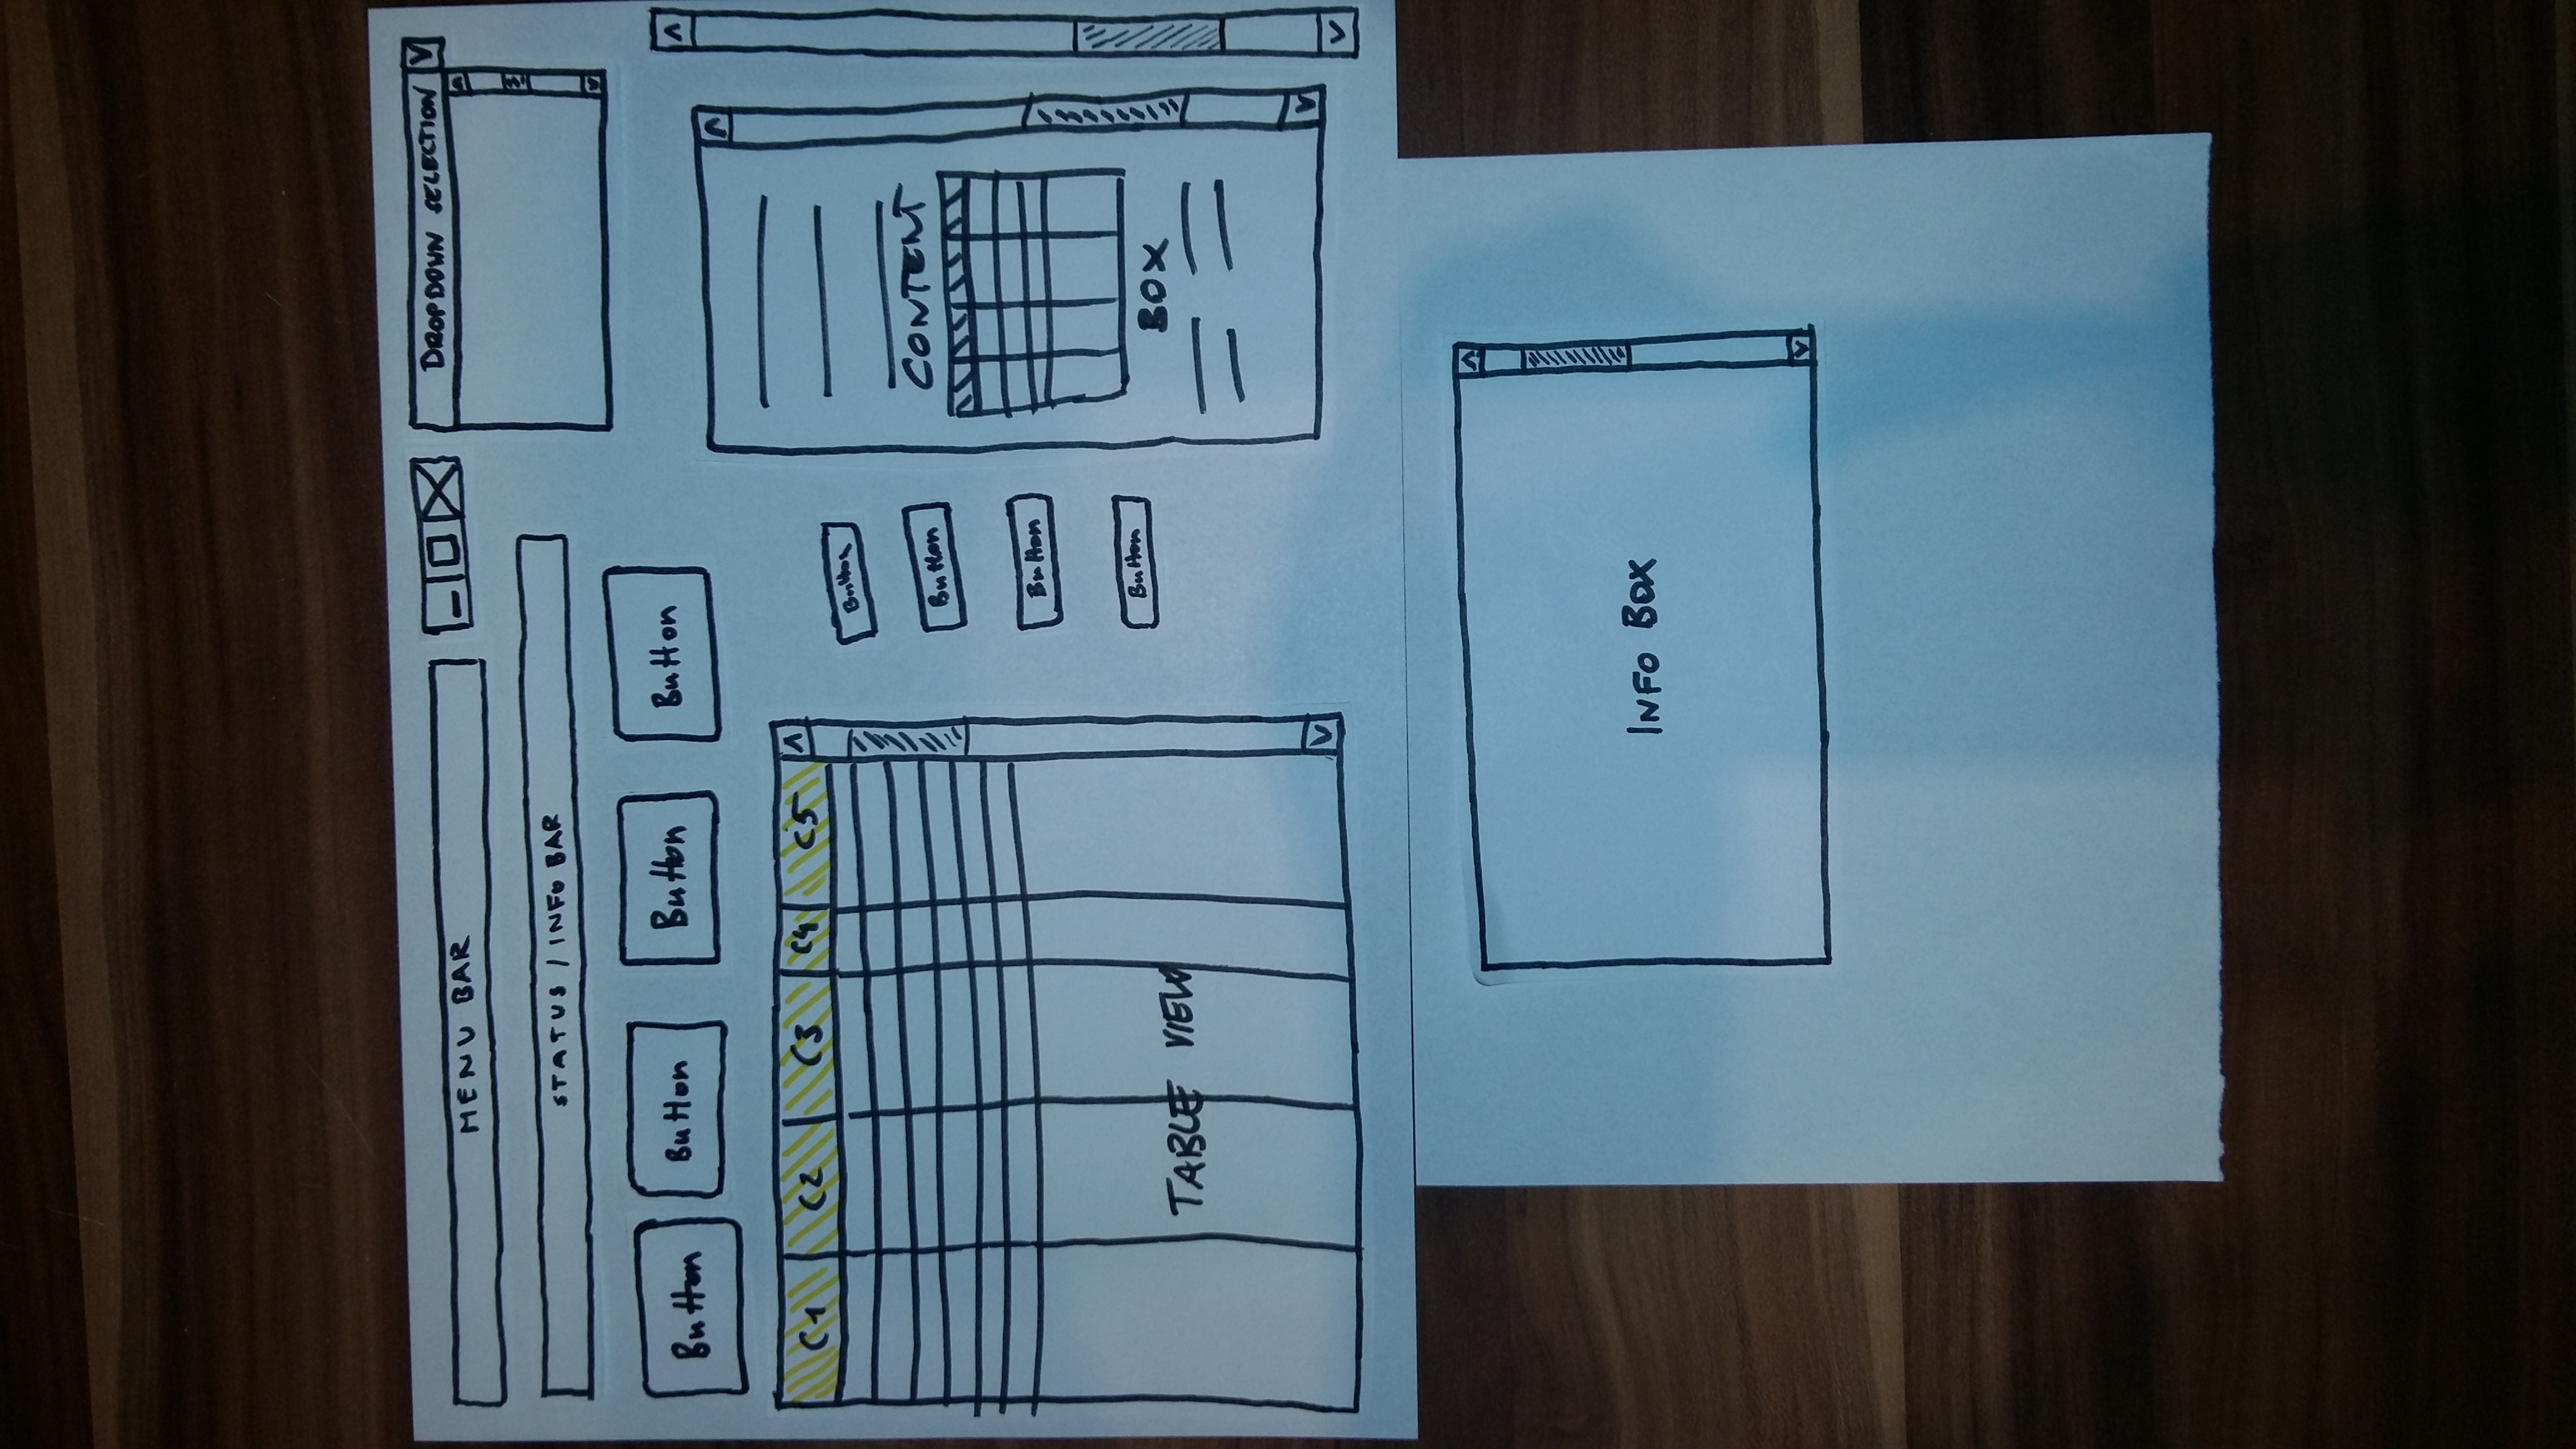 MENU BAR
DROPDOWN SELECTION
STATUS / INFO BAR
Button
Button
Button
Button
C1 C2 C3 C4 C5
TABLE VIEW
Button
Button
Button
Button
CONTENT
BOX
INFO BOX